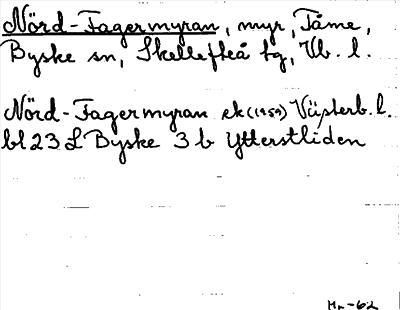 Nörd-Fagermyran, myr, Tåme,
Byske sn, Skellefteå tg, Vb. l.
Nörd-Fagermyran ek (1959) Västerb. l.
bl 23 L Byske 3 b Ytterstliden
Mr-62